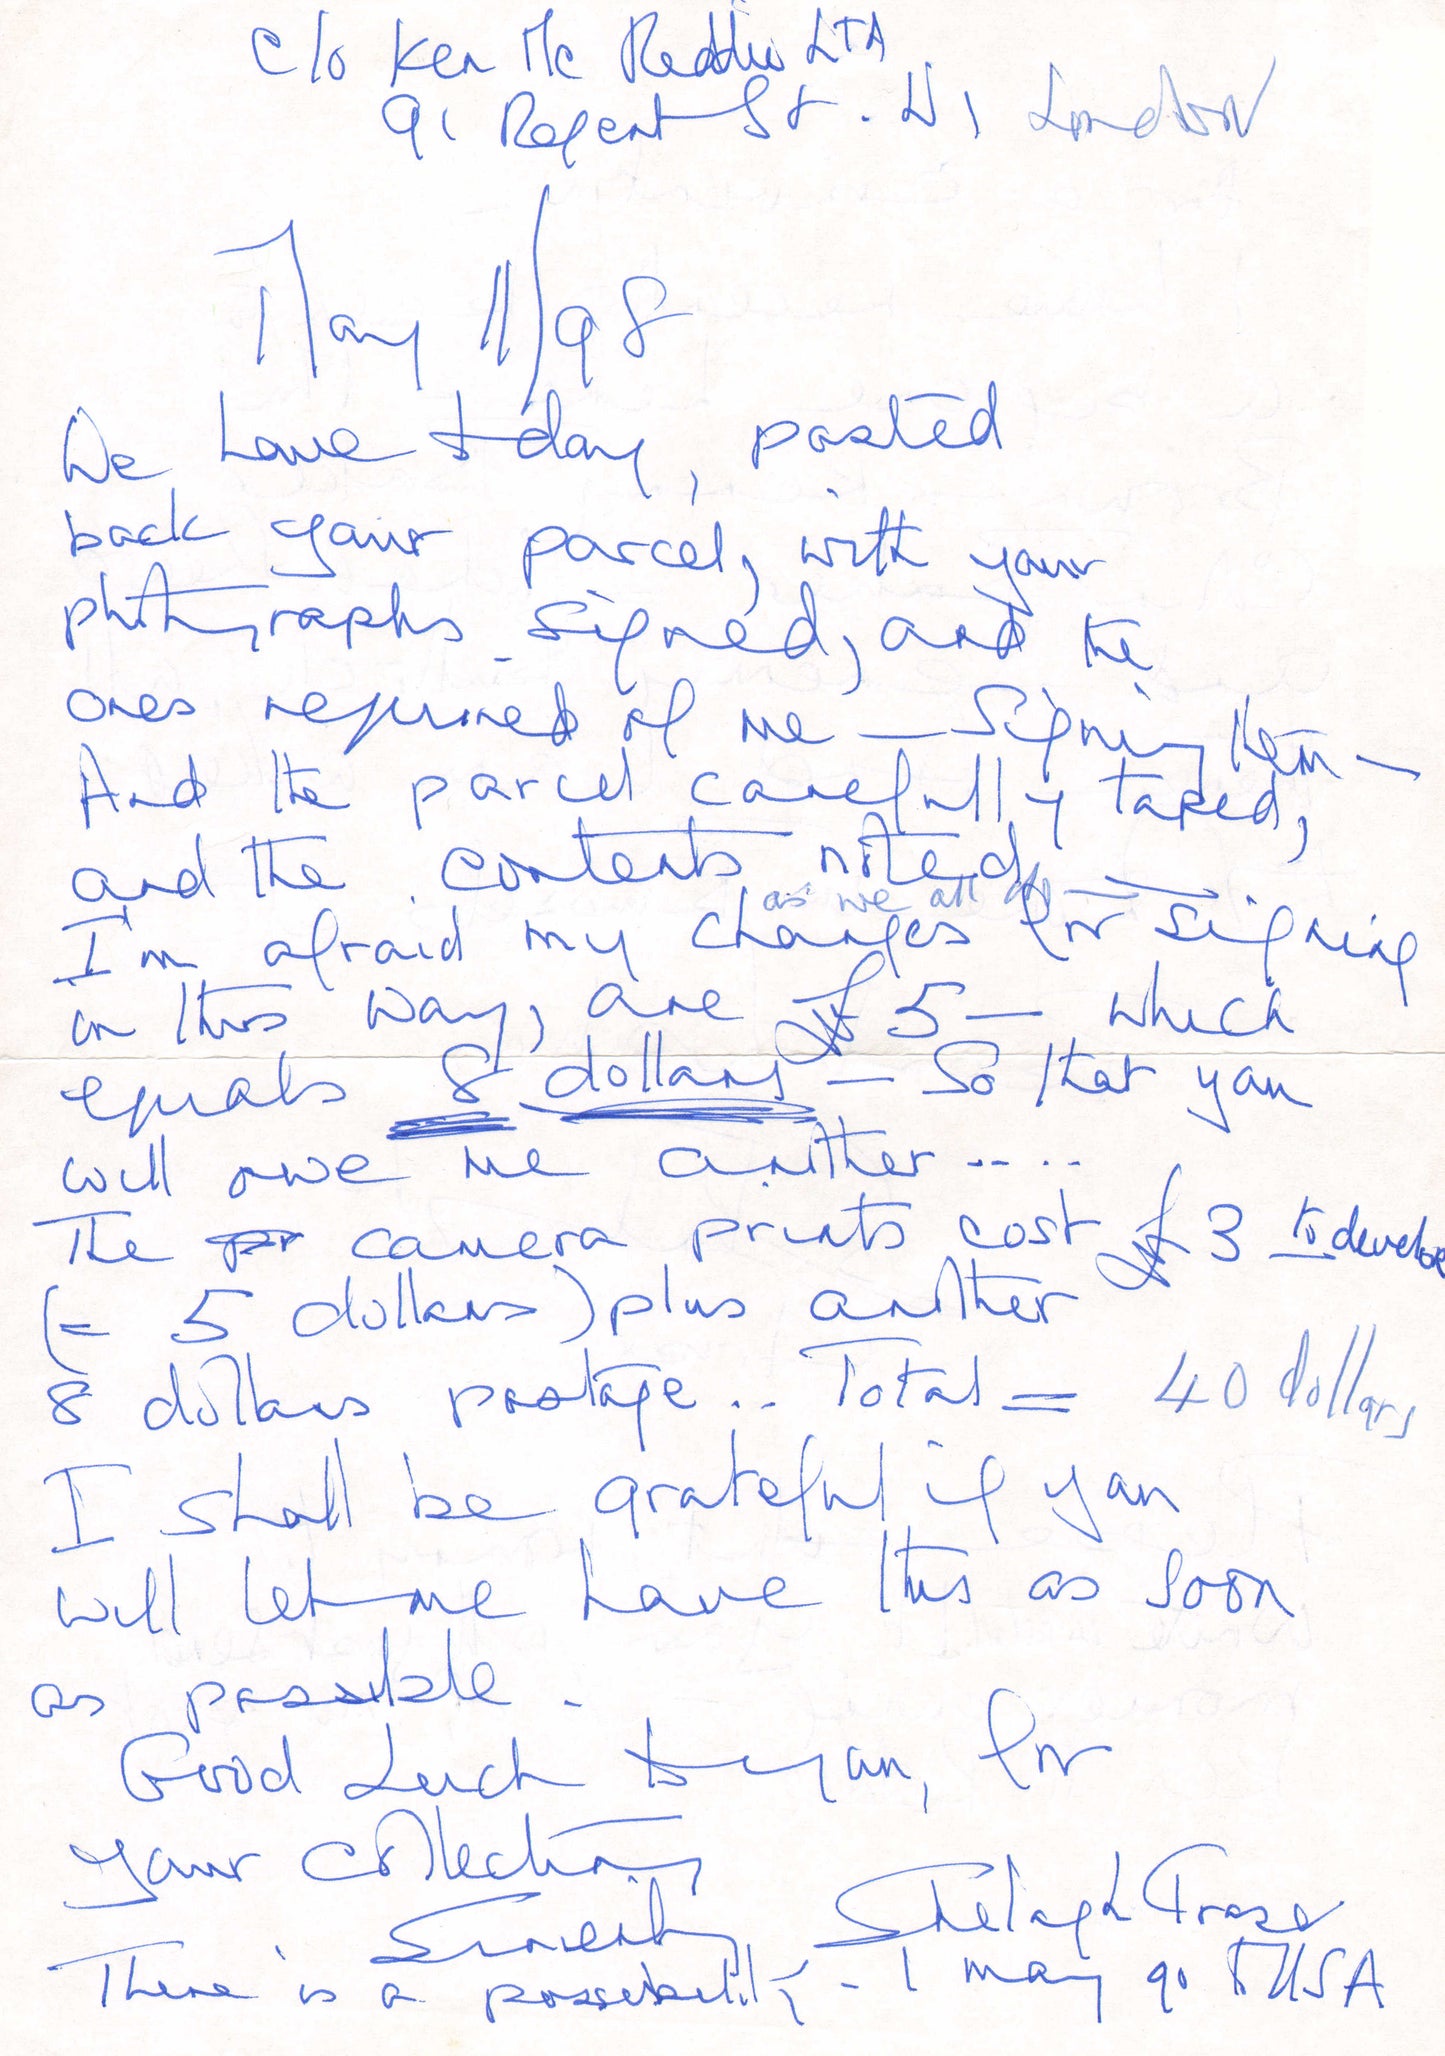 c/o Ken Mc Reddie LTA
91 Regent St. W1 London
May 11/98
We have today, posted
back your parcel, with your
photographs signed, and the
ones required of me — signing them —
And the parcel carefully taped,
and the contents noted,
as we all do
I'm afraid my charges for signing
in this way, are £5 — which
equals 8 dollars — So that you
will owe me another ....
The pr camera prints cost £3 to develop
(= 5 dollars) plus another
8 dollars postage .. Total = 40 dollars
I shall be grateful if you
will let me have this as soon
as possible.
Good Luck to you, for
your collection,
Sincerely, Shelagh Fraser
There is a possibility - I may go to USA